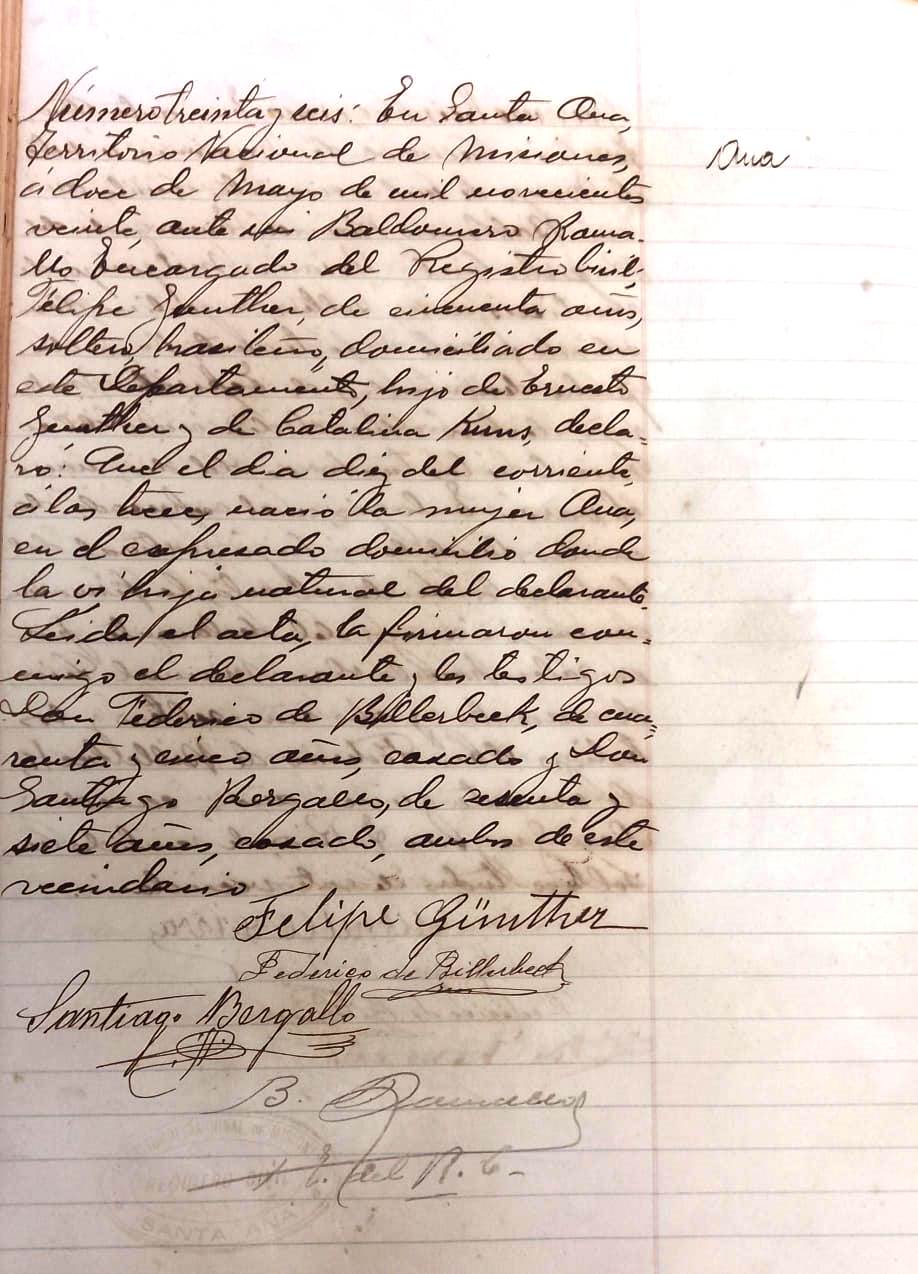 Número treinta y seis: En Santa Ana,
Territorio Nacional de Misiones,
á doce de Mayo de mil novecientos
veinte, ante mi Baldomero Rama-
llo Encargado del Registro Civil,
Felipe Gunther, de cincuenta años,
soltero, brasileño, domiciliado en
este Departamento, hijo de Ernesto
Gunther y de Catalina Kuns, decla-
ró: Que el dia diez del corriente,
á las trece, nació la mujer Ana,
en el expresado domicilio donde
la ví hija natural del declarante.
Leida el acta, la firmaron con-
migo el declarante y los testigos
Don Federico de Billerbeck, de cua-
renta y cinco años, casado y Don
Santiago Bergallo, de sesenta y
siete años, casado, ambos de este
vecindario
Felipe Günther
Federico de Billerbeck
Santiago Bergallo
B. Ramallo
E. del R. C.
Ana
REGISTRO CIVIL
SANTA ANA